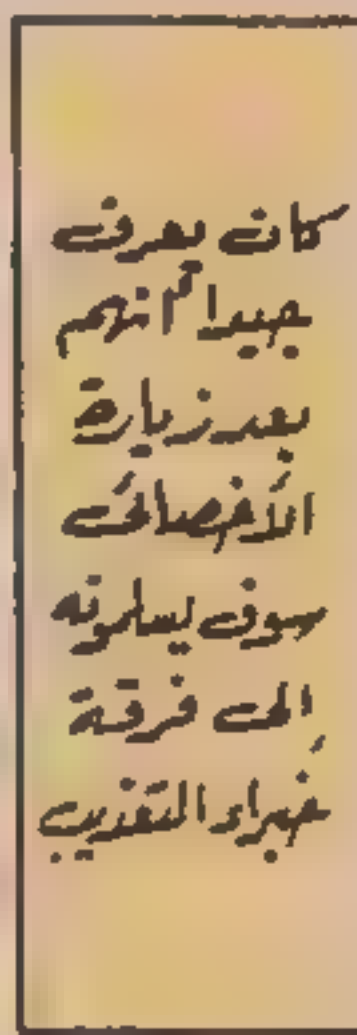 كان يعرف
جيدا أنهم
بعد زيارة
الأخصائى
سوف يسلمونه
إلى فرقة
خبراء التعذيب